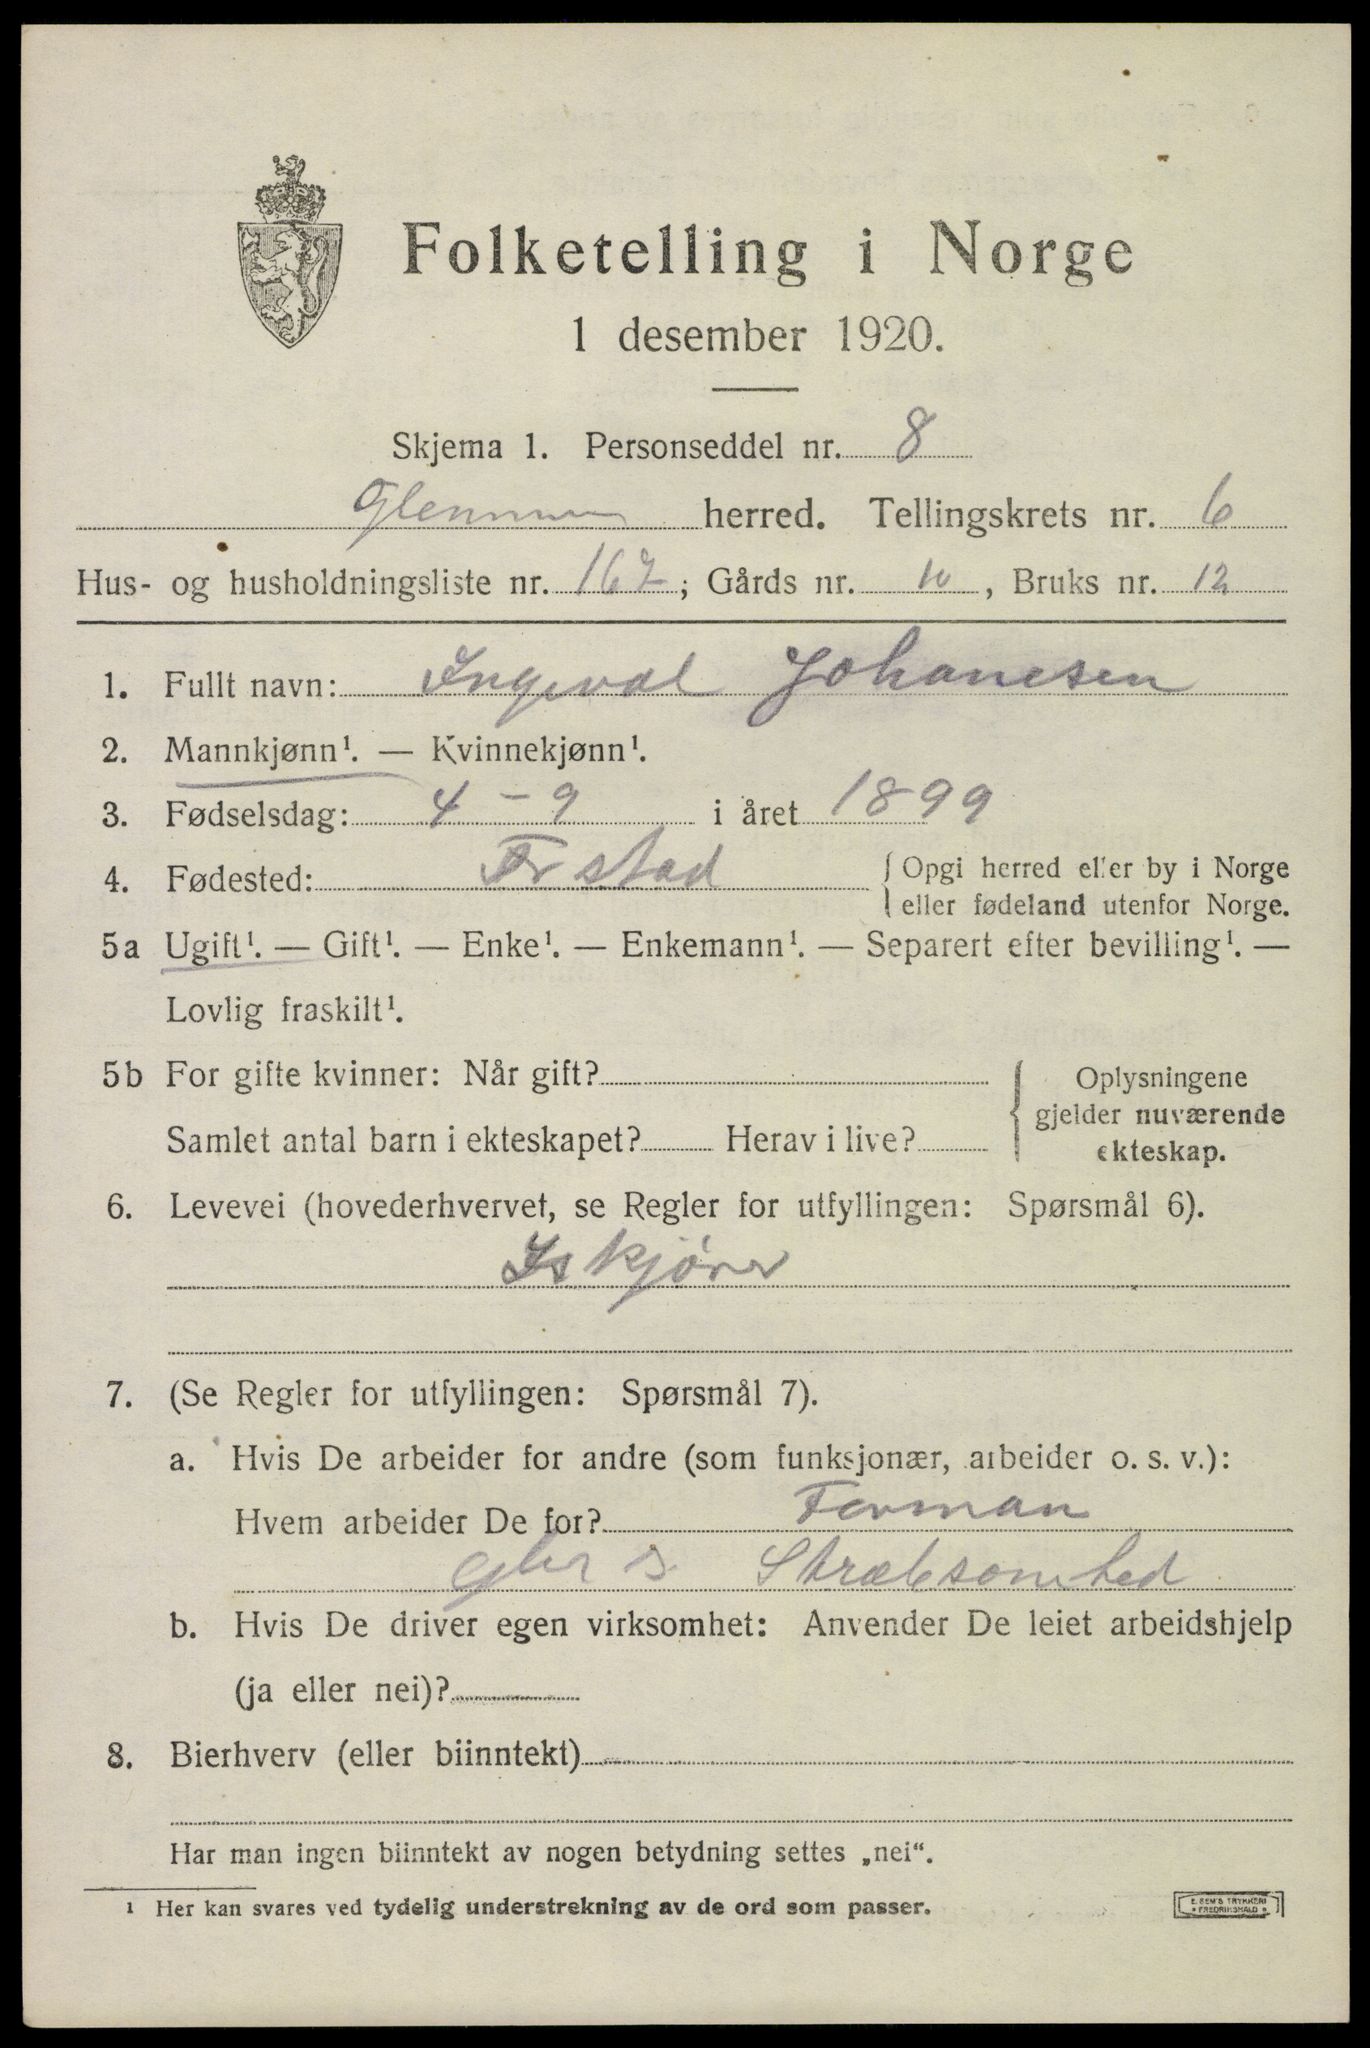 Folketelling i Norge
1 desember 1920.
Skjema 1. Personseddel nr. 8
Glemmen herred. Tellingskrets nr. 6
Hus- og husholdningsliste nr. 167; Gårds nr. 10, Bruks nr. 12
1. Fullt navn: Ingeval Johanesen
2. Mannkjønn¹. — Kvinnekjønn¹.
3. Fødselsdag: 4 - 9 i året 1899
4. Fødested: Frstad { Opgi herred eller by i Norge
eller fødeland utenfor Norge.
5a Ugift¹. — Gift¹. — Enke¹. — Enkemann¹. — Separert efter bevilling¹. —
Lovlig fraskilt¹.
5b For gifte kvinner: Når gift? { Oplysningene
gjelder nuværende
Samlet antal barn i ekteskapet? Herav i live? ekteskap.
6. Levevei (hovederhvervet, se Regler for utfyllingen: Spørsmål 6).
Iskjører
7. (Se Regler for utfyllingen: Spørsmål 7).
a. Hvis De arbeider for andre (som funksjonær, arbeider o. s. v.):
Hvem arbeider De for? Forman
Stræbsomhed
b. Hvis De driver egen virksomhet: Anvender De leiet arbeidshjelp
(ja eller nei)?
8. Bierhverv (eller biinntekt)
Har man ingen biinntekt av nogen betydning settes „nei“.
¹ Her kan svares ved tydelig understrekning av de ord som passer.
E. SEM'S TRYKKERI
FREDRIKSHALD